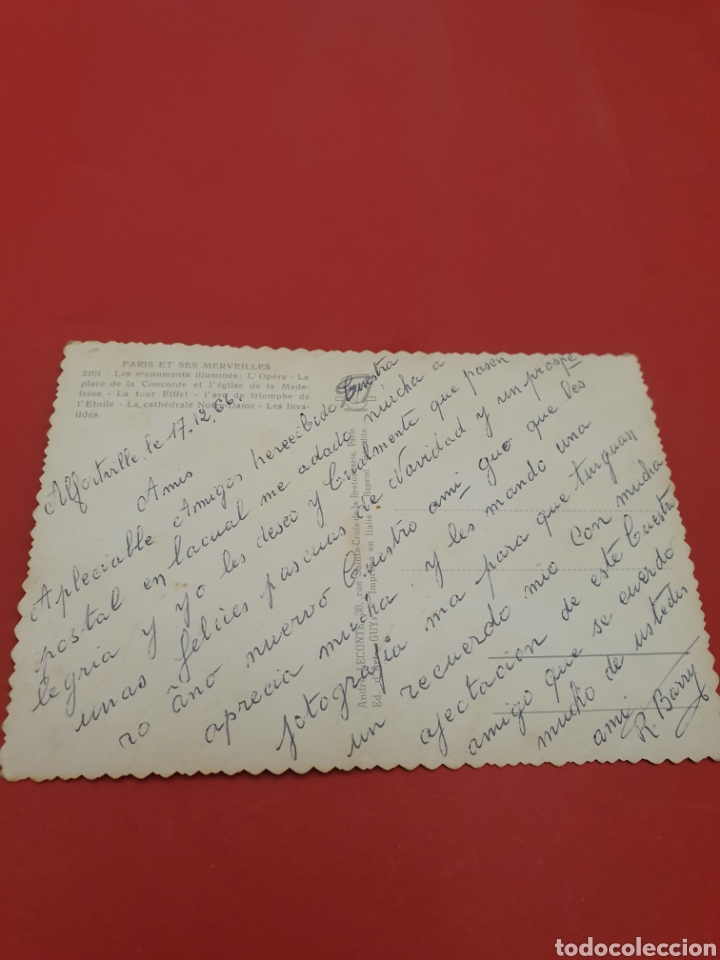 PARIS ET SES MERVEILLES
5201 - Les monuments illuminés : L'Opéra - La
place de la Concorde et l'église de la Made-
leine - La tour Eiffel - L'arc de triomphe de
l'Etoile - La cathédrale Notre-Dame - Les Inva-
lides.
Alfortville le 17.12.66.
Amis
Apleciable Amigos he recebido Cuestra
postal en lacual me adado muicha a
legria y yo les deseo y Cualmente que pasen
unas felices pascuas de Navidad y un prospe
ro âno nuervo Cuestro ami guo que les
aprecia muicha y les mando una
fotografia ma para que tuiguan
un recuerdo mio con mucha
afectacion de este Cuestro
amigo que se cuerdo
mucho de ustedes
ami
R. Barry
André LECONTE, 38, rue Sainte-Croix-de-la-Bretonnerie, Paris
Ed. d'Art GUY - Imprimé en Italie - Reprod. interdite
todocoleccion